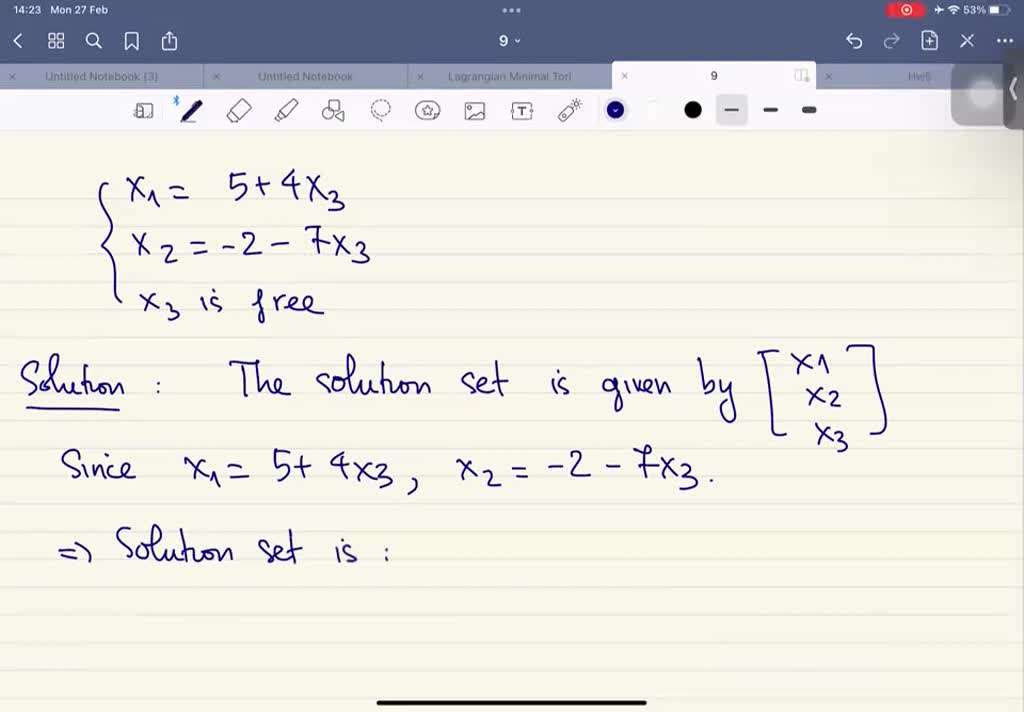 14:23 Mon 27 Feb
53%
9
Untitled Notebook (3)
Untitled Notebook
Lagrangian Minimal Tori
9
Hw5
x1 = 5 + 4x3
x2 = -2 - 7x3
x3 is free
Solution : The solution set is given by [x1 x2 x3]
Since x1 = 5 + 4x3, x2 = -2 - 7x3.
=> Solution set is :